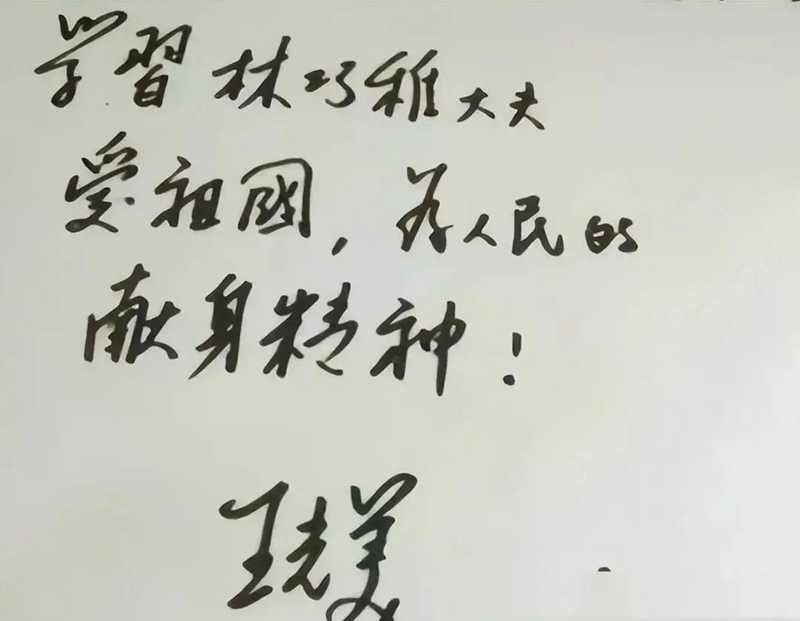 学習林巧稚大夫
爱祖國，为人民的
献身精神！
王光美